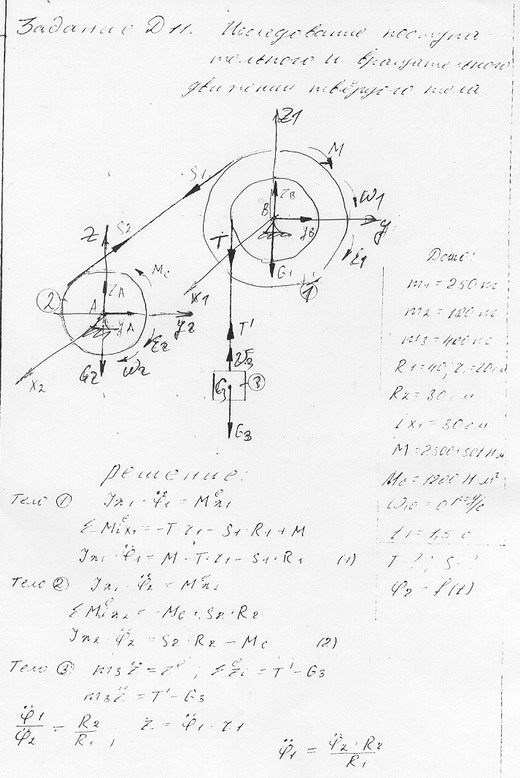 Задание Д11. Исследование поступа
тельного и вращательного
движения твёрдого тела
Z1
M
S1
ω1
ZB
B
yB
y
S2
Z
T
G1
ε1
X1
1
Mc
2
ZA
A
yA
y2
ε2
ω2
G2
X2
T'
3
G3
Дано:
m1 = 250 кг
m2 =
m3 = 400 кг
R1 = 40;
R2 = 30 см
ix1 = 30 см
M =
Mc =
ω10 = 0
t1 = 1,5 с
T - ?; S - ?
φ2 = f(t)
Решение:
Тело ① Jx1 · φ̈1 = Mᵉx1
ΣMᵉix1 = -T·r1 - S1·R1 + M
Jx1 · φ̈1 = M - T·r1 - S1·R1 (1)
Тело ② Jx2 · φ̈2 = Mᵉx2
ΣMᵉix2 = -Mc + S2·R2
Jx2 · φ̈2 = S2·R2 - Mc (2)
Тело ③ m3z̈ = Zᵉ; ΣZᵉi = T' - G3
m3z̈ = T' - G3
φ̈1/φ̈2 = R2/R1; z̈ = φ̈1 · r1
φ̈1 = φ̈2·R2/R1